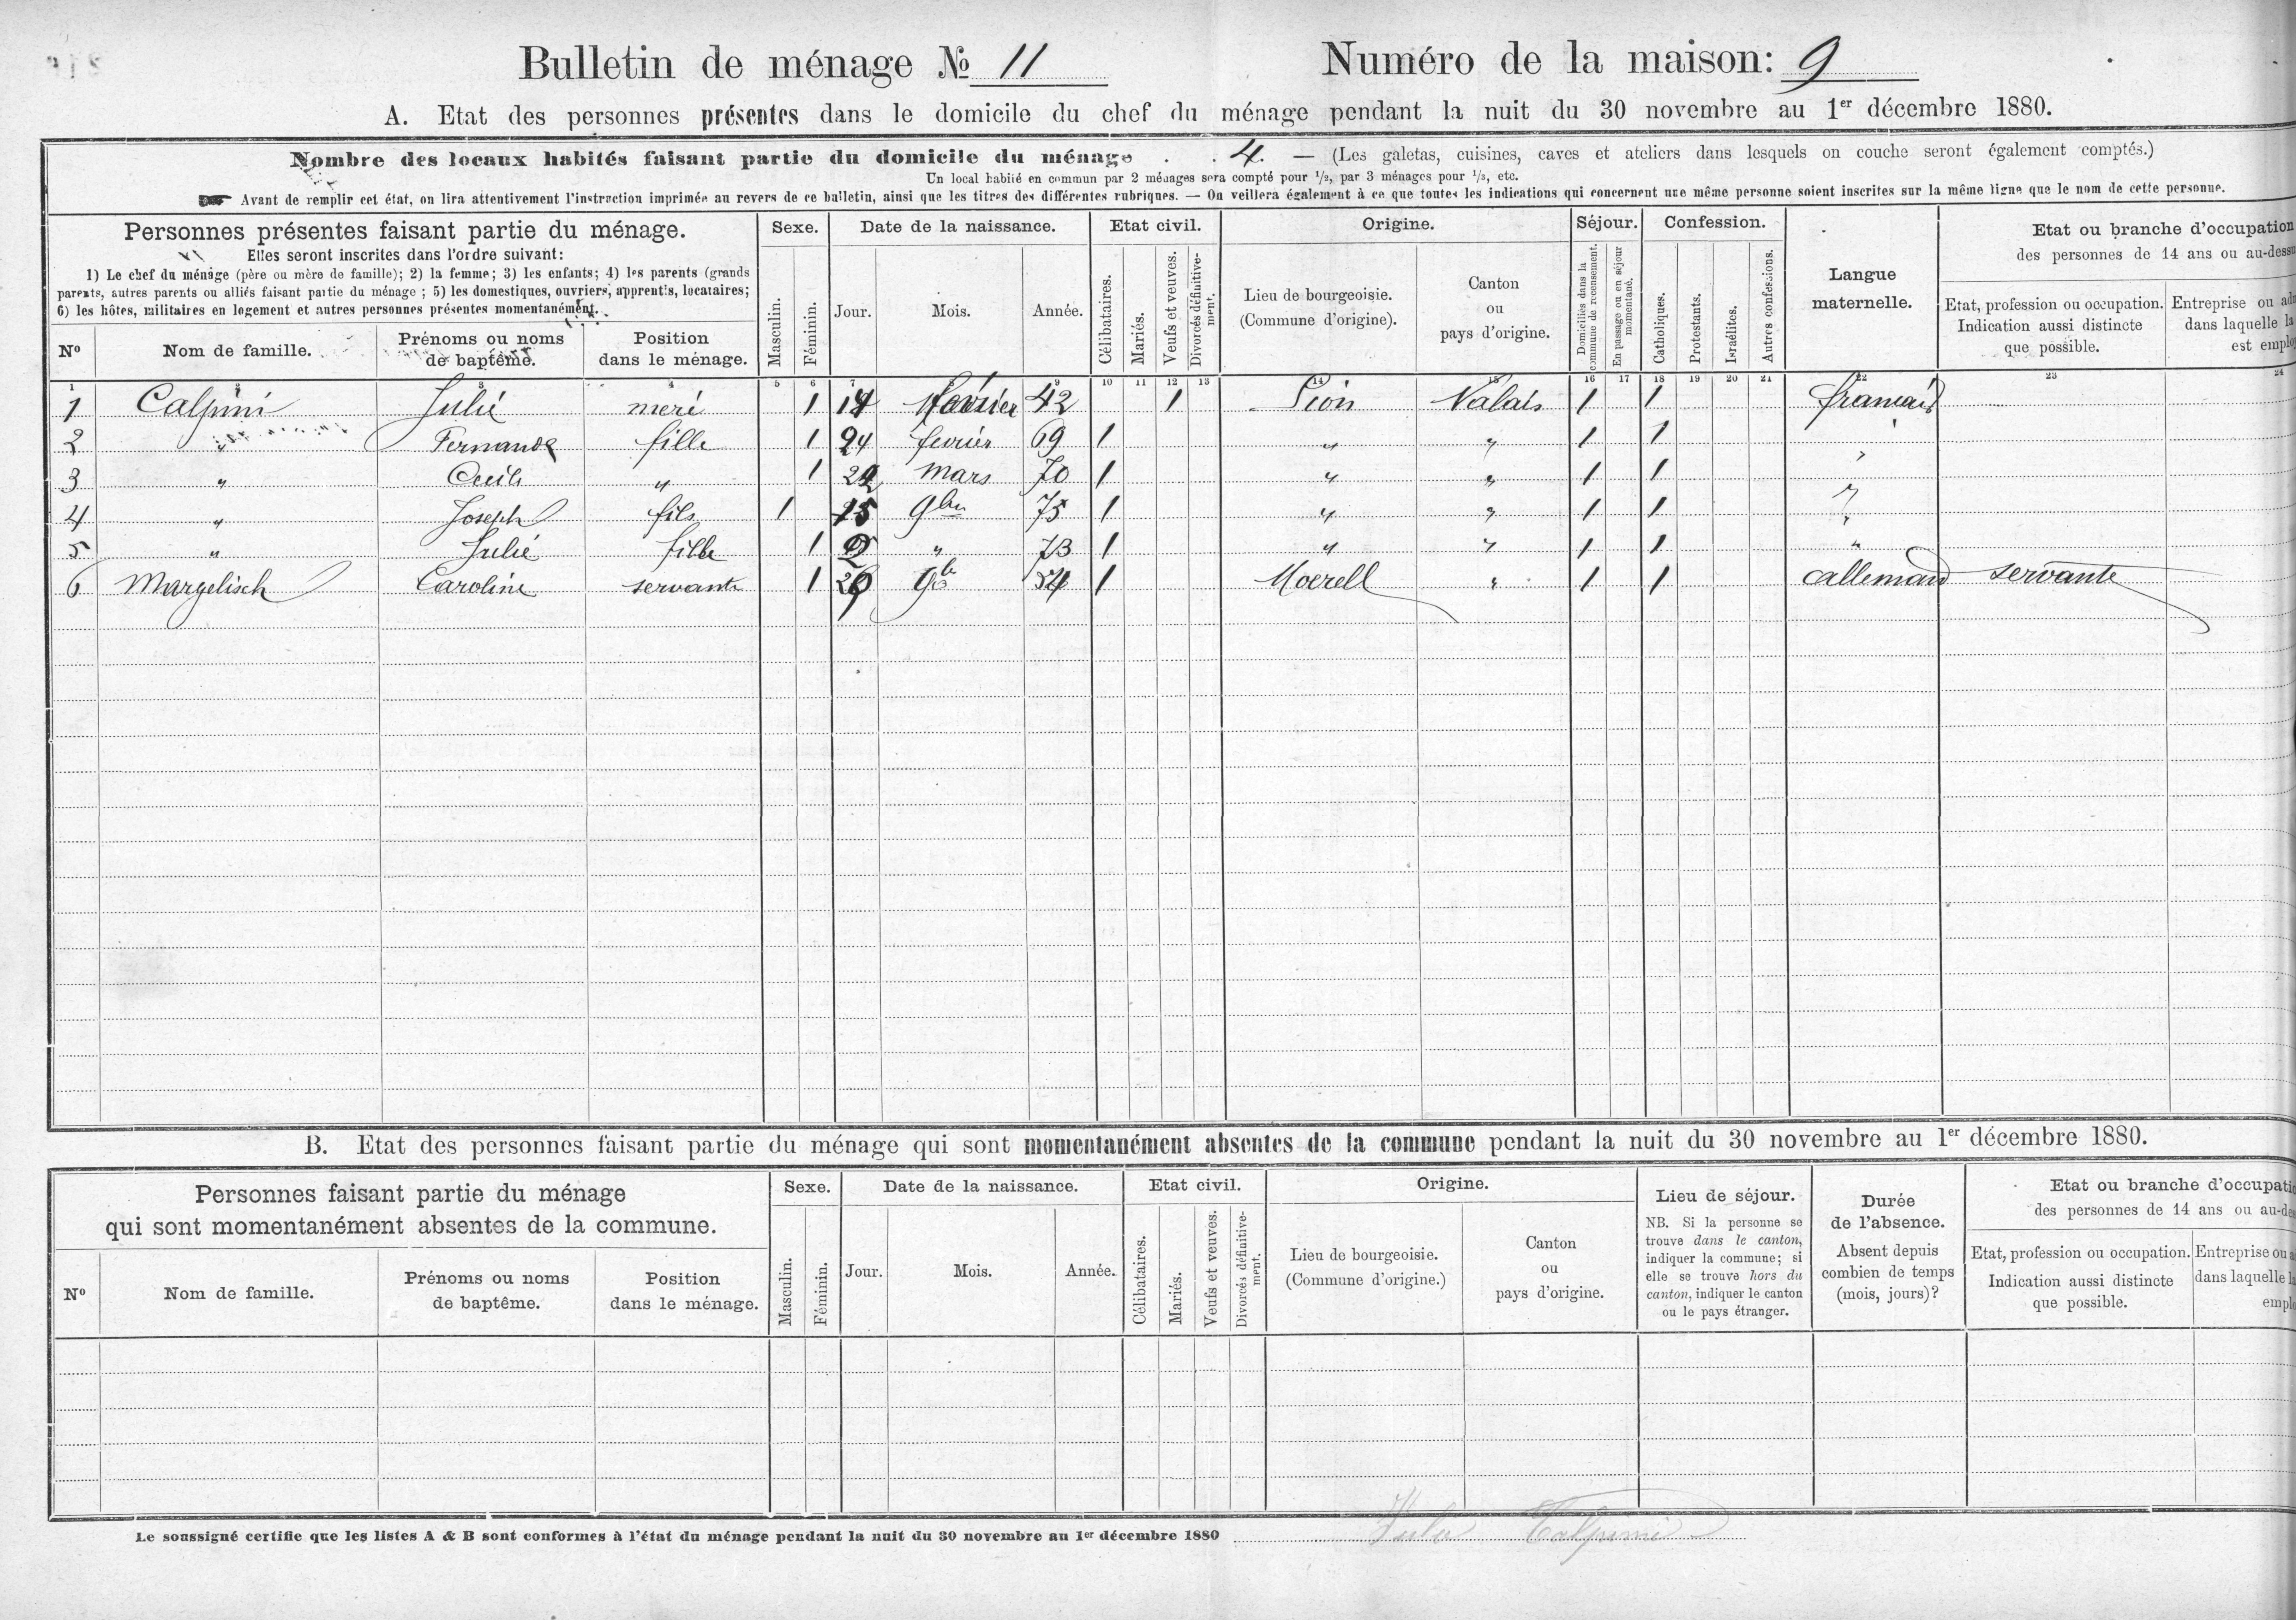 Bulletin de ménage № 11 Numéro de la maison: 9
A. Etat des personnes présentes dans le domicile du chef du ménage pendant la nuit du 30 novembre au 1er décembre 1880.
Nombre des locaux habités faisant partie du domicile du ménage . . 4. — (Les galetas, cuisines, caves et ateliers dans lesquels on couche seront également comptés.)
Un local habité en commun par 2 ménages sera compté pour 1/2, par 3 ménages pour 1/3, etc.
Avant de remplir cet état, on lira attentivement l'instruction imprimée au revers de ce bulletin, ainsi que les titres des différentes rubriques. — On veillera également à ce que toutes les indications qui concernent une même personne soient inscrites sur la même ligne que le nom de cette personne.
Personnes présentes faisant partie du ménage.
Elles seront inscrites dans l'ordre suivant:
1) Le chef du ménage (père ou mère de famille); 2) la femme; 3) les enfants; 4) les parents (grands
parents, autres parents ou alliés faisant partie du ménage ; 5) les domestiques, ouvriers, apprentis, locataires;
6) les hôtes, militaires en logement et autres personnes présentes momentanément.
Nº
Nom de famille.
Prénoms ou noms
de baptême.
Position
dans le ménage.
Sexe.
Masculin.
Féminin.
Date de la naissance.
Jour.
Mois.
Année.
Etat civil.
Célibataires.
Mariés.
Veufs et veuves.
Divorcés définitive-
ment.
Origine.
Lieu de bourgeoisie.
(Commune d'origine).
Canton
ou
pays d'origine.
Séjour.
Domiciliés dans la
commune de recensement.
En passage ou en séjour
momentané.
Confession.
Catholiques.
Protestants.
Israélites.
Autres confessions.
Langue
maternelle.
Etat ou branche d'occupation
des personnes de 14 ans ou au-dess
Etat, profession ou occupation.
Indication aussi distincte
que possible.
Entreprise ou ad
dans laquelle la
est emplo
1 2 3 4 5 6 7 8 9 10 11 12 13 14 15 16 17 18 19 20 21 22 23 24
1 Calpini Julie mere 1 14 42 1 Sion Valais 1 1 francais
2 " Fernande fille 1 24 fevrier 69 1 " " 1 1 "
3 " Cecile " 1 mars 70 1 " " 1 1 "
4 " Joseph fils 1 15 9bre 75 1 " " 1 1 "
5 " Julie fille 1 2 " 73 1 " " 1 1 "
6 Margelisch Caroline servante 1 9b 54 1 Moerell " 1 1 allemand servante
B. Etat des personnes faisant partie du ménage qui sont momentanément absentes de la commune pendant la nuit du 30 novembre au 1er décembre 1880.
Personnes faisant partie du ménage
qui sont momentanément absentes de la commune.
Nº
Nom de famille.
Prénoms ou noms
de baptême.
Position
dans le ménage.
Sexe.
Masculin.
Féminin.
Date de la naissance.
Jour.
Mois.
Année.
Etat civil.
Célibataires.
Mariés.
Veufs et veuves.
Divorcés définitive-
ment.
Origine.
Lieu de bourgeoisie.
(Commune d'origine.)
Canton
ou
pays d'origine.
Lieu de séjour.
NB. Si la personne se
trouve dans le canton,
indiquer la commune; si
elle se trouve hors du
canton, indiquer le canton
ou le pays étranger.
Durée
de l'absence.
Absent depuis
combien de temps
(mois, jours)?
Etat ou branche d'occupati
des personnes de 14 ans ou au-de
Etat, profession ou occupation.
Indication aussi distincte
que possible.
Entreprise ou a
dans laquelle l
empl
Le soussigné certifie que les listes A & B sont conformes à l'état du ménage pendant la nuit du 30 novembre au 1er décembre 1880 Julie Calpini